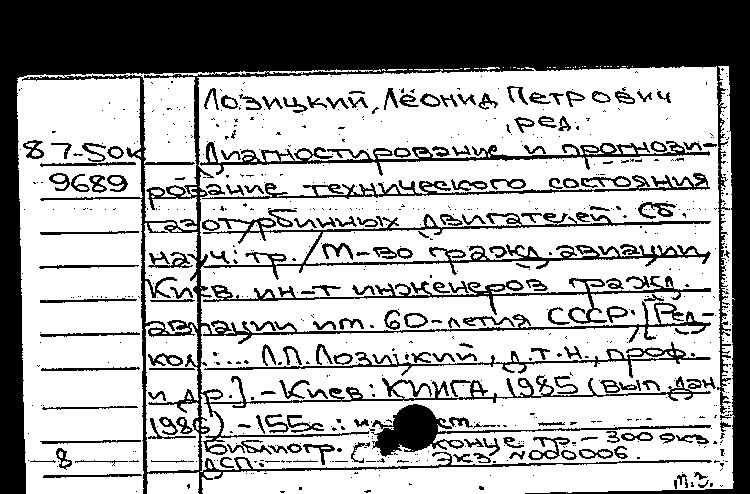 Лозицкий, Леонид Петрович
, ред.
87-50к Диагностирование и прогнози-
9689 рование технического состояния
газотурбинных двигателей: Сб.
науч. тр. / М-во гражд. авиации,
Киев. ин-т инженеров гражд.
авиации им. 60-летия СССР; [Ред-
кол.:... Л.П. Лозицкий, д.т.н., проф.
и др.]. - Киев: КИИГА, 1985 (вып. дан.
1986). - 155с.: ил.
Библиогр. конце тр. - 300 экз.
8 ДСП. Экз. №000006.
т.з.